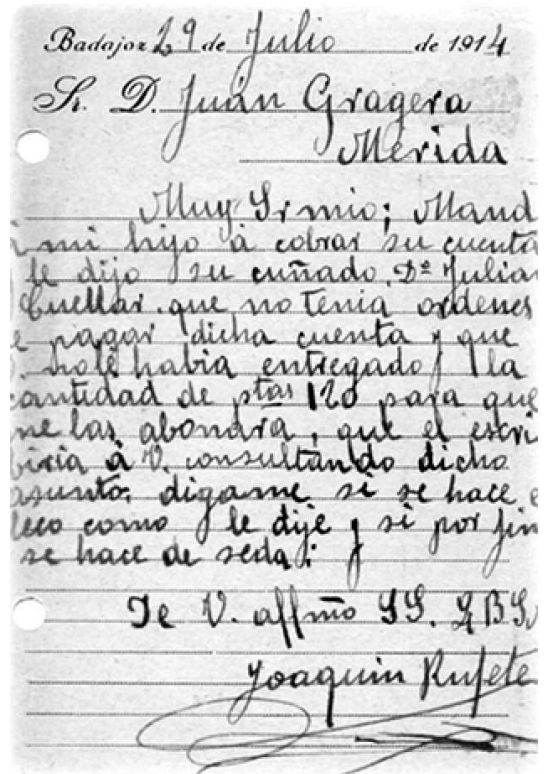 Badajoz 29 de Julio de 1914
Sr. D. Juan Gragera
Merida
Muy Sr mio; Mand
mi hijo á cobrar su cuenta
le dijo su cuñado Dn Julian
Cuellar que no tenia ordenes
e pagar dicha cuenta y que
no le habia entregado la
cantidad de ptas 120 para que
me las abonára, que el escri
biria á V. consultando dicho
asunto. digame si se hace e
leco como le dije y si por fin
se hace de seda;
De V. affmo SS. Q B S.
Joaquin Rufete